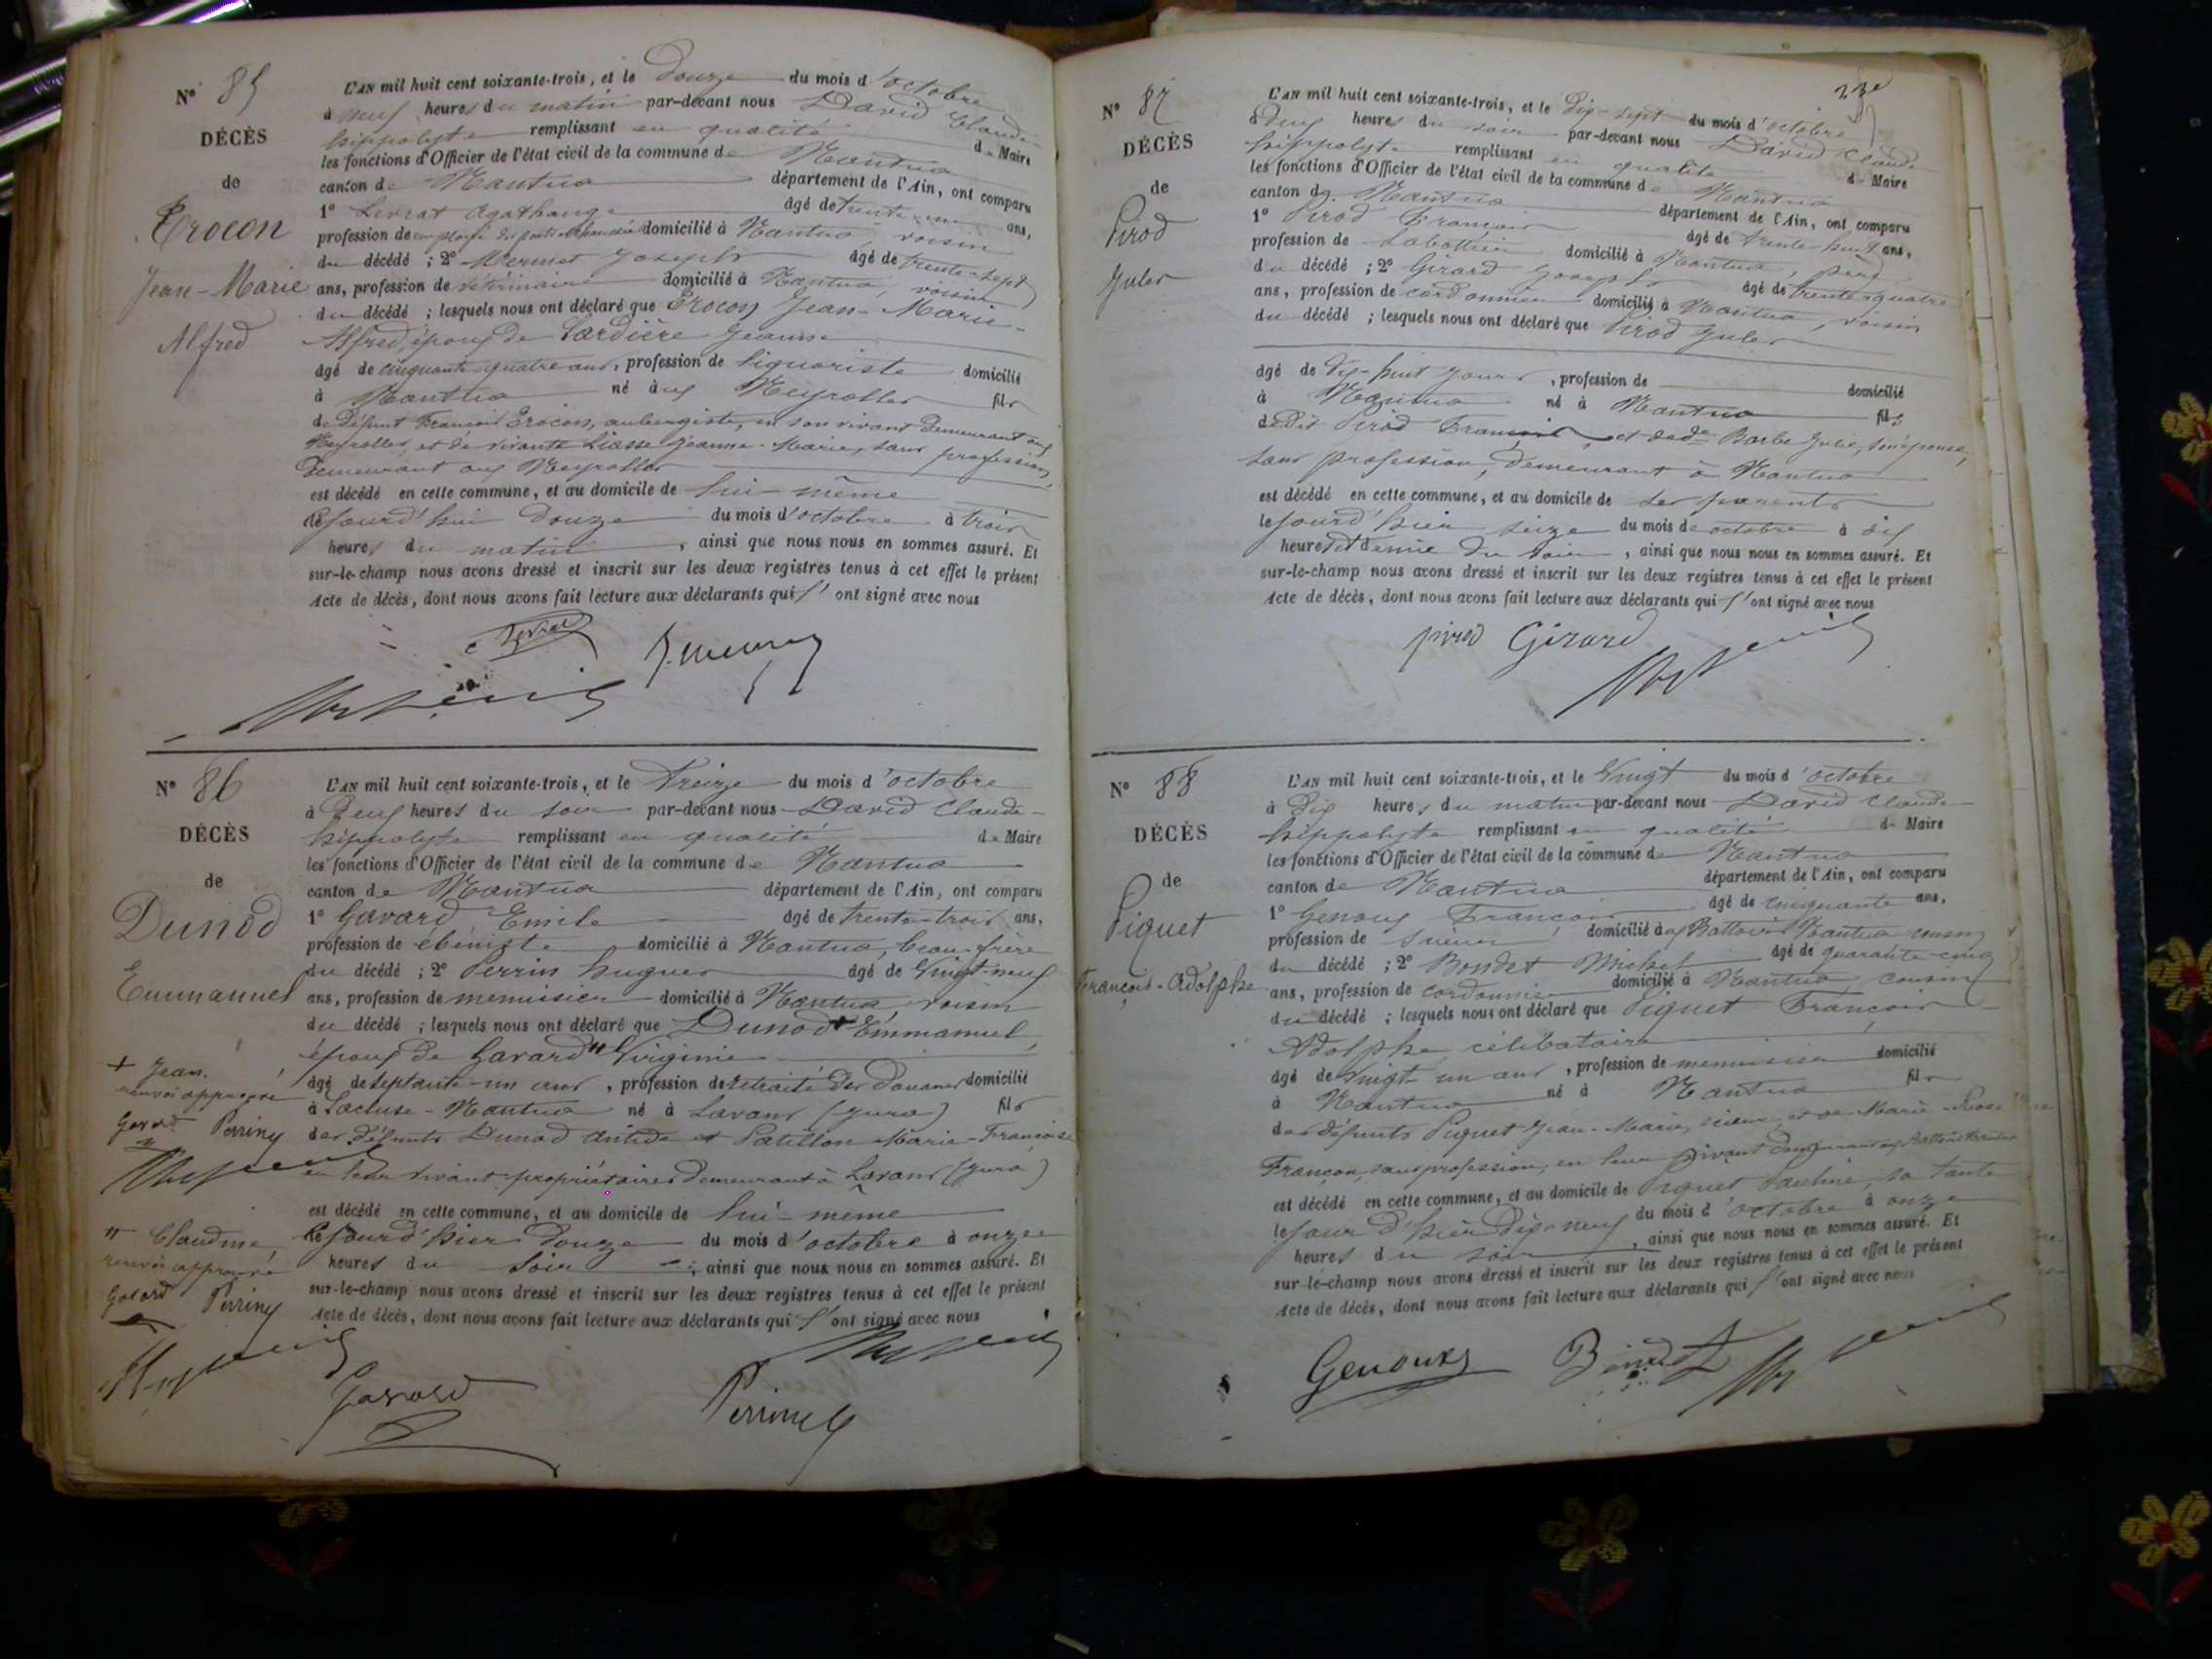 N° 85
DÉCÈS
de
Crocon
Jean-Marie
Alfred
L'AN mil huit cent soixante-trois, et le Douze du mois d'octobre
à neuf heures du matin par-devant nous David Claude
hippolyte remplissant en qualité de Maire
les fonctions d'Officier de l'état civil de la commune de Nantua
canton de Nantua département de l'Ain, ont comparu
1° Livrat Agathange âgé de trente un ans,
profession de employé des ponts et chaussées domicilié à Nantua, voisin
du décédé ; 2° Mermet Joseph âgé de trente-sept
ans, profession de vétérinaire domicilié à Nantua, voisin
du décédé ; lesquels nous ont déclaré que Crocon Jean-Marie-
Alfred époux de Lardière Jeanne
âgé de cinquante-quatre ans, profession de liquoriste domicilié
à Nantua né aux Neyrolles fils
de défunt François Crocon, aubergiste, en son vivant demeurant aux
Neyrolles, et de vivante Liasse Jeanne-Marie, sans profession,
demeurant aux Neyrolles
est décédé en cette commune, et au domicile de lui même
cejourd'hui Douze du mois d'octobre à trois
heures du matin, ainsi que nous nous en sommes assuré. Et
sur-le-champ nous avons dressé et inscrit sur les deux registres tenus à cet effet le présent
Acte de décès, dont nous avons fait lecture aux déclarants qui l'ont signé avec nous
N° 86
DÉCÈS
de
Dunod
Emmanuel
+ Jean.
renvoi approuvé
Gavard Perriny
" Claudine,
renvoi approuvé
Gavard Perriny
L'AN mil huit cent soixante-trois, et le Treize du mois d'octobre
à Deux heures du soir par-devant nous David Claude-
hippolyte remplissant en qualité de Maire
les fonctions d'Officier de l'état civil de la commune de Nantua
canton de Nantua département de l'Ain, ont comparu
1° Gavard Emile âgé de trente-trois ans,
profession de ébéniste domicilié à Nantua, beau-frère
du décédé ; 2° Perrin hugues âgé de Vingt-neuf
ans, profession de menuisier domicilié à Nantua, voisin
du décédé ; lesquels nous ont déclaré que Dunod + Emmanuel,
époux de Gavard " Virginie
âgé de septante-un ans, profession de retraité des Douanes domicilié
à Lacluse-Nantua né à Lavans (Jura) fils
des défunts Dunod Antide et Patillon Marie-Françoise
en leur vivant propriétaires demeurant à Lavans (Jura)
est décédé en cette commune, et au domicile de lui-même
le jour d'hier Douze du mois d'octobre à onze
heures du soir, ainsi que nous nous en sommes assuré. Et
sur-le-champ nous avons dressé et inscrit sur les deux registres tenus à cet effet le présent
Acte de décès, dont nous avons fait lecture aux déclarants qui l'ont signé avec nous
Gavard Perriny
N° 87
DÉCÈS
de
Pirod
Jules
L'AN mil huit cent soixante-trois, et le Dix-sept du mois d'octobre
à Deux heures du soir par-devant nous David Claude
hippolyte remplissant en qualité de Maire
les fonctions d'Officier de l'état civil de la commune de Nantua
canton de Nantua département de l'Ain, ont comparu
1° Pirod François âgé de trente-huit ans,
profession de domicilié à Nantua, père
du décédé ; 2° Girard Joseph âgé de trente-quatre
ans, profession de cordonnier domicilié à Nantua, voisin
du décédé ; lesquels nous ont déclaré que Pirod Jules
âgé de Dix-huit jours, profession de domicilié
à Nantua né à Nantua fils
dudit Pirod François et de de Barbe Julie, son épouse,
sans profession, demeurant à Nantua
est décédé en cette commune, et au domicile de ses parents
le jour d'hier seize du mois de octobre à dix
heures et demie du soir, ainsi que nous nous en sommes assuré. Et
sur-le-champ nous avons dressé et inscrit sur les deux registres tenus à cet effet le présent
Acte de décès, dont nous avons fait lecture aux déclarants qui l'ont signé avec nous
pirod Girard
N° 88
DÉCÈS
de
Piquet
François-Adolphe
L'AN mil huit cent soixante-trois, et le Vingt du mois d'octobre
à Dix heures du matin par-devant nous David Claude-
hippolyte remplissant en qualité de Maire
les fonctions d'Officier de l'état civil de la commune de Nantua
canton de Nantua département de l'Ain, ont comparu
1° Genoux François âgé de cinquante ans,
profession de scieur domicilié aux Battoirs Nantua cousin
du décédé ; 2° Bondet Michel âgé de quarante-cinq
ans, profession de cordonnier domicilié à Nantua, cousin
du décédé ; lesquels nous ont déclaré que Piquet François
Adolphe, célibataire
âgé de Vingt-un ans, profession de menuisier domicilié
à Nantua né à Nantua fils
des défunts Piquet Jean-Marie, scieur, et de Marie-Rose
Françon, sans profession, en leur vivant demeurant aux Battoirs Nantua
est décédé en cette commune, et au domicile de Piquet Pauline, sa tante
le jour d'hier Dix-neuf du mois d'octobre à onze
heures du soir, ainsi que nous nous en sommes assuré. Et
sur-le-champ nous avons dressé et inscrit sur les deux registres tenus à cet effet le présent
Acte de décès, dont nous avons fait lecture aux déclarants qui l'ont signé avec nous
Genoux Bondet